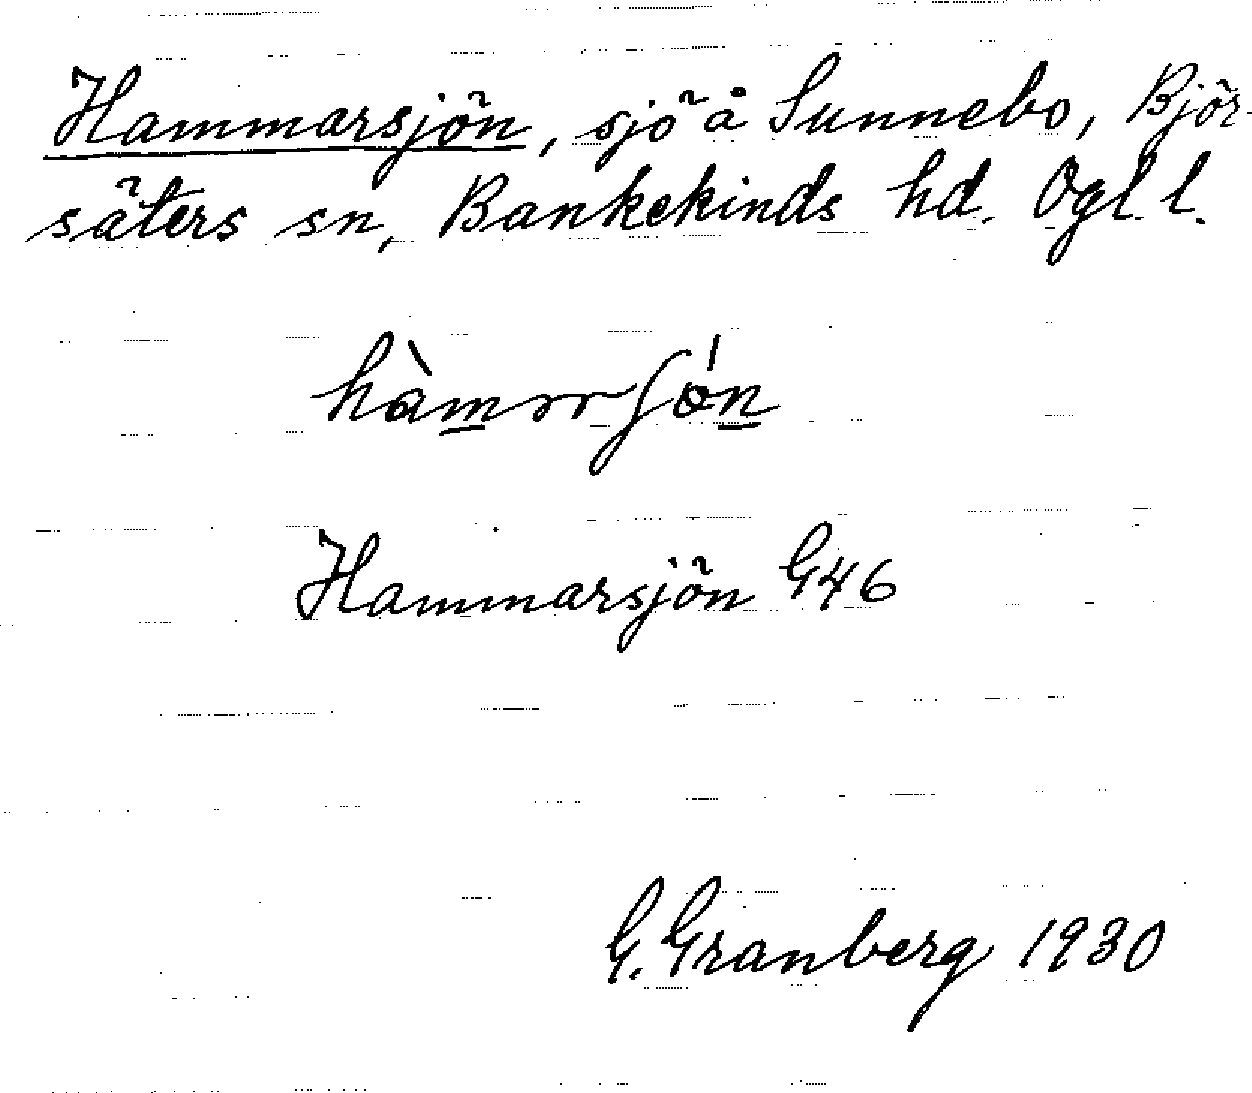 Hammarsjön, sjö å Sunnebo, Björ-
säters sn, Bankekinds hd. Ögl. l.
Hammarsjön G46
G. Granberg 1930